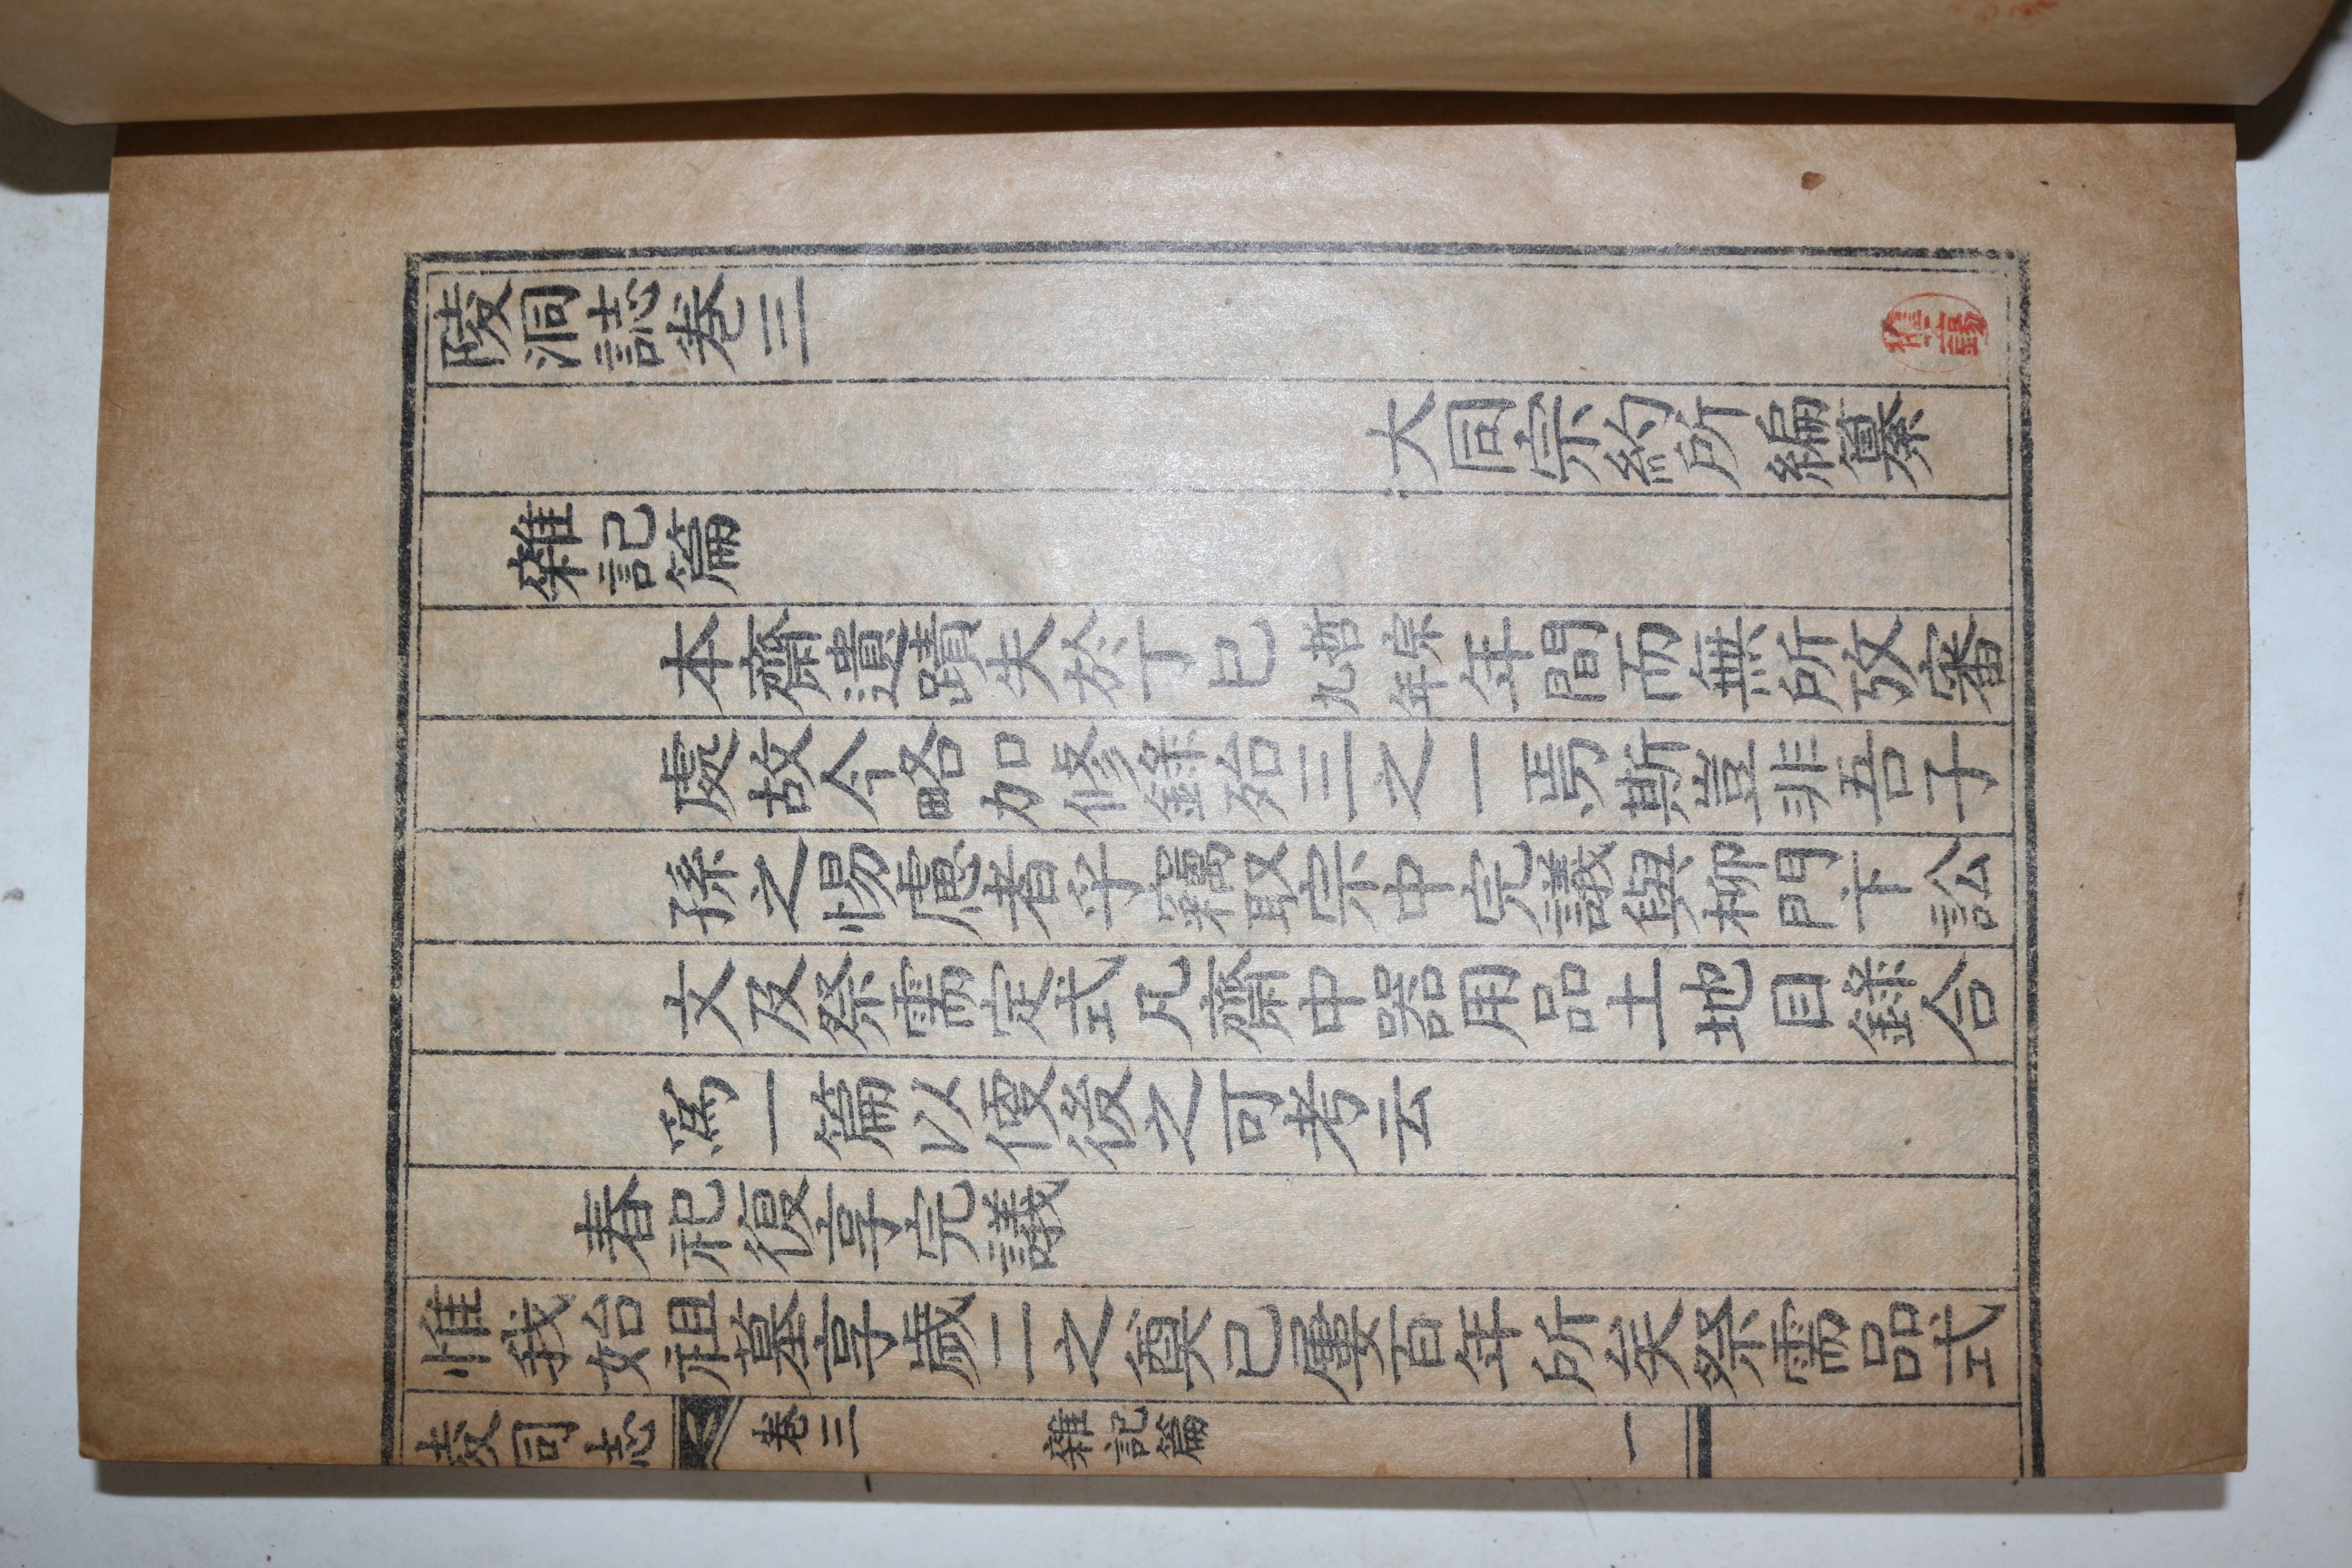 陵洞誌卷三
大同宗約所編纂
雜記篇
本齋遺蹟失於丁巳哲宗九年年間而無所攷審
處故今略加修錄殆三之一焉斯豈非吾子
孫之惕慮者乎竊取宗中完議與柳門下訟
文及祭需定式凡齋中器用品土地目錄合
爲一篇以後之可考云
春祀復享完議
惟我始祖墓享歲二之已屢百年所矣祭需品式
陵洞誌 卷三 雜記篇 一